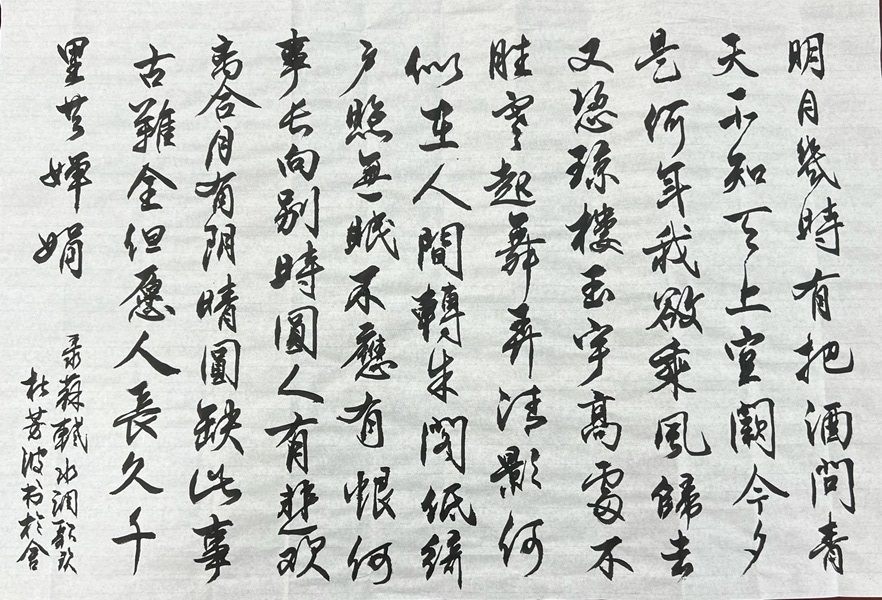 明月幾時有把酒問青
天不知天上宮闕今夕
是何年我欲乘風歸去
又恐瓊樓玉宇高處不
勝寒起舞弄清影何
似在人間轉朱閣低綺
户照無眠不應有恨何
事长向别時圓人有悲欢
离合月有阴晴圓缺此事
古難全但愿人長久千
里共嬋娟
录蘇軾水調歌頭
杜芳波书於舍